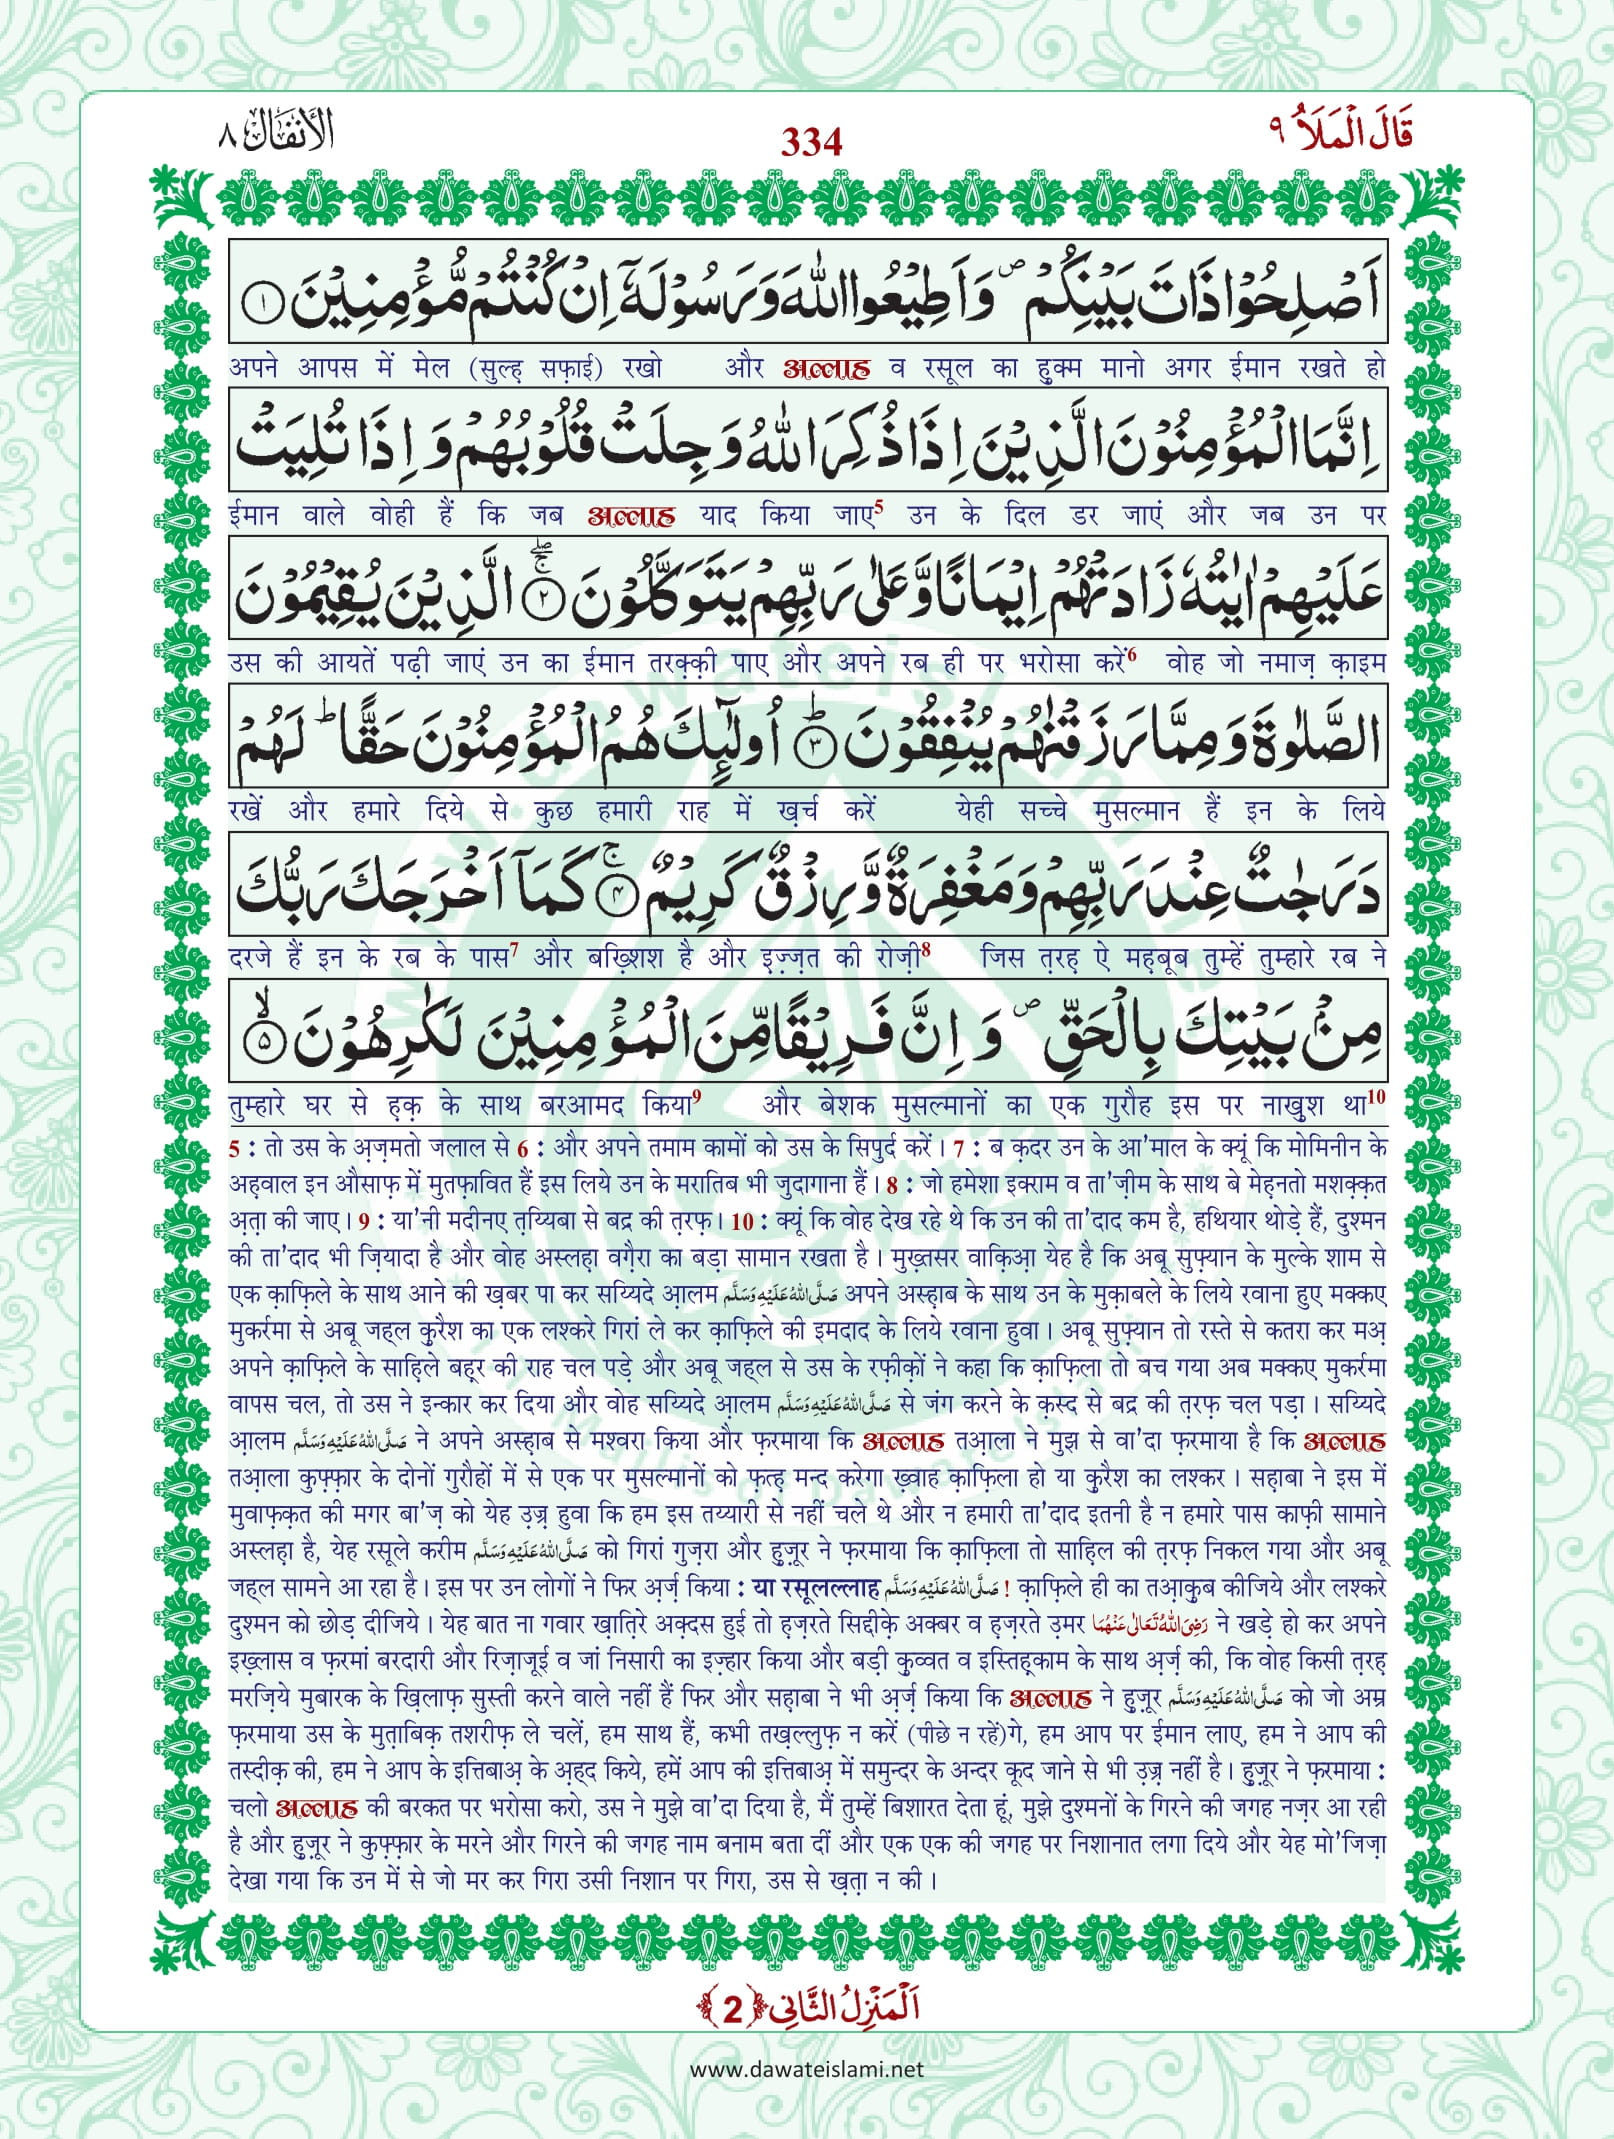 قَالَ الْمَلَاُ ٩
334
الْاَنْفَال ٨
اَصْلِحُوْا ذَاتَ بَیْنِكُمْ ۪ وَ اَطِیْعُوا اللّٰهَ وَ رَسُوْلَهٗۤ اِنْ كُنْتُمْ مُّؤْمِنِیْنَ ۝۱
अपने आपस में मेल (सुल्ह़ सफ़ाई) रखो और अल्लाह व रसूल का हुक्म मानो अगर ईमान रखते हो
اِنَّمَا الْمُؤْمِنُوْنَ الَّذِیْنَ اِذَا ذُكِرَ اللّٰهُ وَ جِلَتْ قُلُوْبُهُمْ وَ اِذَا تُلِیَتْ
ईमान वाले वोही हैं कि जब अल्लाह याद किया जाए5 उन के दिल डर जाएं और जब उन पर
عَلَیْهِمْ اٰیٰتُهٗ زَادَتْهُمْ اِیْمَانًا وَّ عَلٰى رَبِّهِمْ یَتَوَكَّلُوْنَ ۝۲ۚۖ الَّذِیْنَ یُقِیْمُوْنَ
उस की आयतें पढ़ी जाएं उन का ईमान तरक़्क़ी पाए और अपने रब ही पर भरोसा करें6 वोह जो नमाज़ क़ाइम
الصَّلٰوةَ وَ مِمَّا رَزَقْنٰهُمْ یُنْفِقُوْنَ ۝۳ؕ اُولٰٓىٕكَ هُمُ الْمُؤْمِنُوْنَ حَقًّاؕ لَهُمْ
रखें और हमारे दिये से कुछ हमारी राह में ख़र्च करें येही सच्चे मुसल्मान हैं इन के लिये
دَرَجٰتٌ عِنْدَ رَبِّهِمْ وَ مَغْفِرَةٌ وَّ رِزْقٌ كَرِیْمٌ ۝۴ۚ كَمَاۤ اَخْرَجَكَ رَبُّكَ
दरजे हैं इन के रब के पास7 और बख़्शिश है और इ़ज़्ज़त की रोज़ी8 जिस त़रह़ ऐ मह़बूब तुम्हें तुम्हारे रब ने
مِنْۢ بَیْتِكَ بِالْحَقِّ ۪ وَ اِنَّ فَرِیْقًا مِّنَ الْمُؤْمِنِیْنَ لَكٰرِهُوْنَ ۝۵ۙ
तुम्हारे घर से ह़क़ के साथ बरआमद किया9 और बेशक मुसल्मानों का एक गुरौह इस पर नाख़ुश था10
5 : तो उस के अ़ज़मतो जलाल से 6 : और अपने तमाम कामों को उस के सिपुर्द करें। 7 : ब क़दर उन के आ'माल के क्यूं कि मोमिनीन के
अह़वाल इन औसाफ़ में मुतफ़ावित हैं इस लिये उन के मरातिब भी जुदागाना हैं। 8 : जो हमेशा इक्राम व ता'ज़ीम के साथ बे मेह़नतो मशक़्क़त
अ़त़ा की जाए। 9 : या'नी मदीनए त़य्यिबा से बद्र की त़रफ़। 10 : क्यूं कि वोह देख रहे थे कि उन की ता'दाद कम है, हथियार थोड़े हैं, दुश्मन
की ता'दाद भी ज़ियादा है और वोह अस्लह़ा वग़ैरा का बड़ा सामान रखता है। मुख़्तसर वाक़िआ़ येह है कि अबू सुफ़्यान के मुल्के शाम से
एक क़ाफ़िले के साथ आने की ख़बर पा कर सय्यिदे आ़लम صَلَّى اللهُ عَلَيْهِ وَسَلَّم अपने अस्ह़ाब के साथ उन के मुक़ाबले के लिये रवाना हुए मक्कए
मुकर्रमा से अबू जहल क़ुरैश का एक लश्करे गिरां ले कर क़ाफ़िले की इमदाद के लिये रवाना हुवा। अबू सुफ़्यान तो रस्ते से कतरा कर मअ़
अपने क़ाफ़िले के साह़िले बह़र की राह चल पड़े और अबू जहल से उस के रफ़ीक़ों ने कहा कि क़ाफ़िला तो बच गया अब मक्कए मुकर्रमा
वापस चल, तो उस ने इन्कार कर दिया और वोह सय्यिदे आ़लम صَلَّى اللهُ عَلَيْهِ وَسَلَّم से जंग करने के क़स्द से बद्र की त़रफ़ चल पड़ा। सय्यिदे
आ़लम صَلَّى اللهُ عَلَيْهِ وَسَلَّم ने अपने अस्ह़ाब से मश्वरा किया और फ़रमाया कि अल्लाह तआ़ला ने मुझ से वा'दा फ़रमाया है कि अल्लाह
तआ़ला कुफ़्फ़ार के दोनों गुरौहों में से एक पर मुसल्मानों को फ़त्ह़ मन्द करेगा ख़्वाह क़ाफ़िला हो या क़ुरैश का लश्कर। सह़ाबा ने इस में
मुवाफ़क़त की मगर बा'ज़ को येह उ़ज़्र हुवा कि हम इस तय्यारी से नहीं चले थे और न हमारी ता'दाद इतनी है न हमारे पास काफ़ी सामाने
अस्लह़ा है, येह रसूले करीम صَلَّى اللهُ عَلَيْهِ وَسَلَّم को गिरां गुज़रा और हु़ज़ूर ने फ़रमाया कि क़ाफ़िला तो साह़िल की त़रफ़ निकल गया और अबू
जहल सामने आ रहा है। इस पर उन लोगों ने फिर अ़र्ज़ किया : या रसूलल्लाह صَلَّى اللهُ عَلَيْهِ وَسَلَّم ! क़ाफ़िले ही का तआ़क़ुब कीजिये और लश्करे
दुश्मन को छोड़ दीजिये। येह बात ना गवार ख़ात़िरे अक़्दस हुई तो ह़ज़रते सिद्दीक़े अक्बर व ह़ज़रते उ़मर رَضِىَ اللهُ تَعَالٰى عَنْهُمَا ने खड़े हो कर अपने
इख़्लास व फ़रमां बरदारी और रिज़ाजूई व जां निसारी का इज़्हार किया और बड़ी क़ुव्वत व इस्तिह़्काम के साथ अ़र्ज़ की, कि वोह किसी त़रह़
मरज़िये मुबारक के ख़िलाफ़ सुस्ती करने वाले नहीं हैं फिर और सह़ाबा ने भी अ़र्ज़ किया कि अल्लाह ने हु़ज़ूर صَلَّى اللهُ عَلَيْهِ وَسَلَّم को जो अम्र
फ़रमाया उस के मुत़ाबिक़ तशरीफ़ ले चलें, हम साथ हैं, कभी तख़ल्लुफ़ न करें (पीछे न रहें)गे, हम आप पर ईमान लाए, हम ने आप की
तस्दीक़ की, हम ने आप के इत्तिबाअ़ के अ़हद किये, हमें आप की इत्तिबाअ़ में समुन्दर के अन्दर कूद जाने से भी उ़ज़्र नहीं है। हु़ज़ूर ने फ़रमाया :
चलो अल्लाह की बरकत पर भरोसा करो, उस ने मुझे वा'दा दिया है, मैं तुम्हें बिशारत देता हूं, मुझे दुश्मनों के गिरने की जगह नज़र आ रही
है और हु़ज़ूर ने कुफ़्फ़ार के मरने और गिरने की जगह नाम बनाम बता दीं और एक एक की जगह पर निशानात लगा दिये और येह मो'जिज़ा
देखा गया कि उन में से जो मर कर गिरा उसी निशान पर गिरा, उस से ख़त़ा न की।
اَلْمَنْزِلُ الثَّانِى ﴿2﴾
www.dawateislami.net